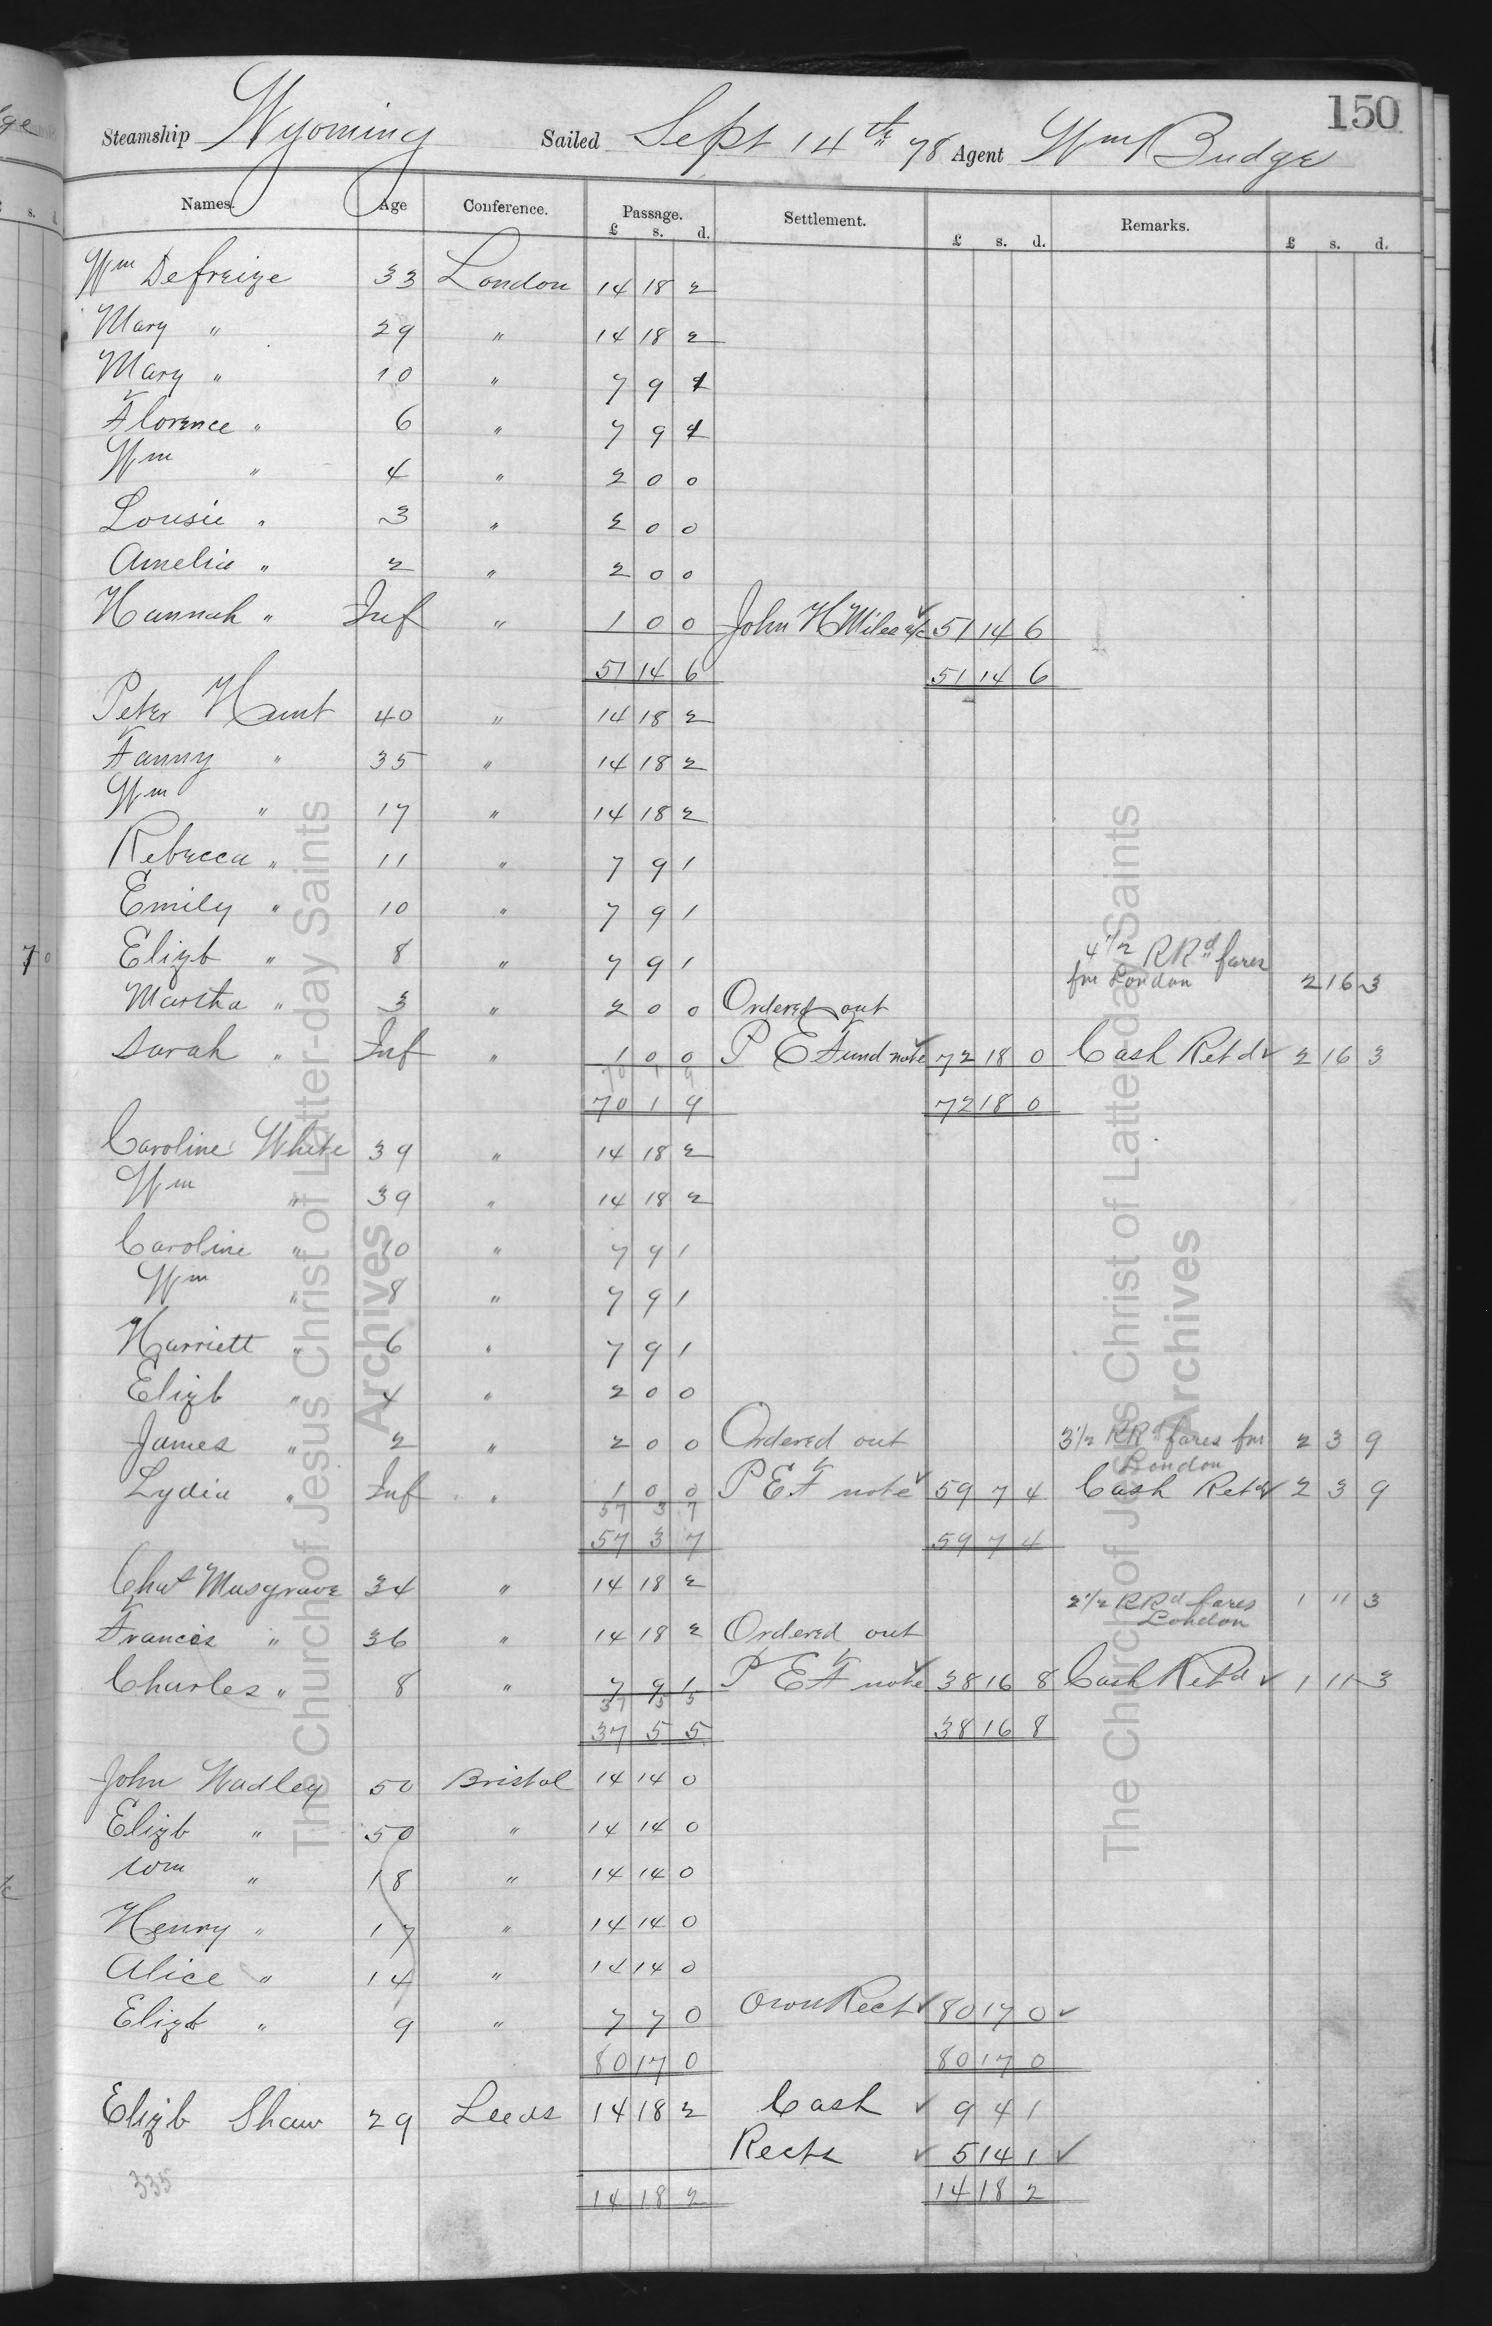 150
Steamship Wyoming Sailed Sept 14th 78 Agent Wm Budge
Names. Age Conference. Passage. £ s. d. Settlement. £ s. d. Remarks. £ s. d.
Wm Defreize 33 London 14 18 2
Mary " 29 " 14 18 2
Mary " 10 " 7 9 1
Florence " 6 " 7 9 1
Wm " 4 " 2 0 0
Lousie " 3 " 2 0 0
Amelia " 2 " 2 0 0
Hannah " Inf " 1 0 0 John H Miles a/c 51 14 6
51 14 6 51 14 6
Peter Hunt 40 " 14 18 2
Fanny " 35 " 14 18 2
Wm " 17 " 14 18 2
Rebecca " 11 " 7 9 1
Emily " 10 " 7 9 1
Elizb " 8 " 7 9 1 4 1/2 RRd fares
fm London 2 16 3
Martha " 3 " 2 0 0 Ordered out
Sarah " Inf " 1 0 0 P E Fund note 72 18 0 Cash Retd 2 16 3
70 1 9
70 1 9 72 18 0
Caroline White 39 " 14 18 2
Wm " 39 " 14 18 2
Caroline " 10 " 7 9 1
Wm " 8 " 7 9 1
Harriett " 6 " 7 9 1
Elizb " 4 " 2 0 0
James " 2 " 2 0 0 Ordered out 3 1/2 RRd fares fm 2 3 9
London
Lydia " Inf " 1 0 0 P E F note 59 7 4 Cash Retd 2 3 9
57 3 7
57 3 7 59 7 4
Chas Musgrave 34 " 14 18 2
2 1/2 RRd fares 1 11 3
London
Francis " 36 " 14 18 2 Ordered out
Charles " 8 " 7 9 1 P E F note 38 16 8 Cash Retd 1 11 3
37 5 5
37 5 5 38 16 8
John Wadley 50 Bristol 14 14 0
Elizb " 50 " 14 14 0
Wm " 18 " 14 14 0
Henry " 17 " 14 14 0
Alice " 14 " 14 14 0
Elizb " 9 " 7 7 0 Own Rect 80 17 0
80 17 0 80 17 0
Elizb Shaw 29 Leeds 14 18 2 Cash 9 4 1
Rects 5 14 1
335 14 18 2 14 18 2
The Church of Jesus Christ of Latter-day Saints
Archives
The Church of Jesus Christ of Latter-day Saints
Archives